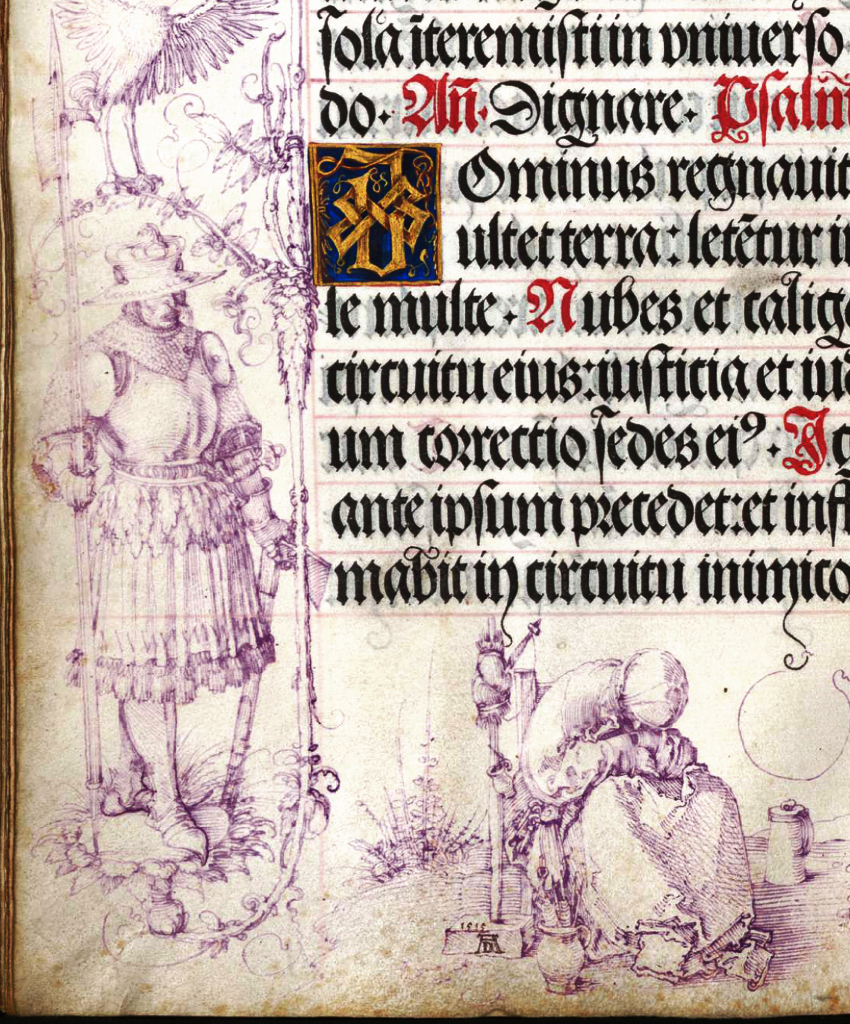 sola īteremistiin vniuerso
do. Añ. Dignare. Psalm̄
DOminus regnauit
ultet terra: letētur i
le multe. Nubes et calig
circuitu eius: iusticia et iu
um correctio sedes eiꝰ. Ig
ante ipsum precedet: et infl
mabit in circuitu inimico
1515
AD